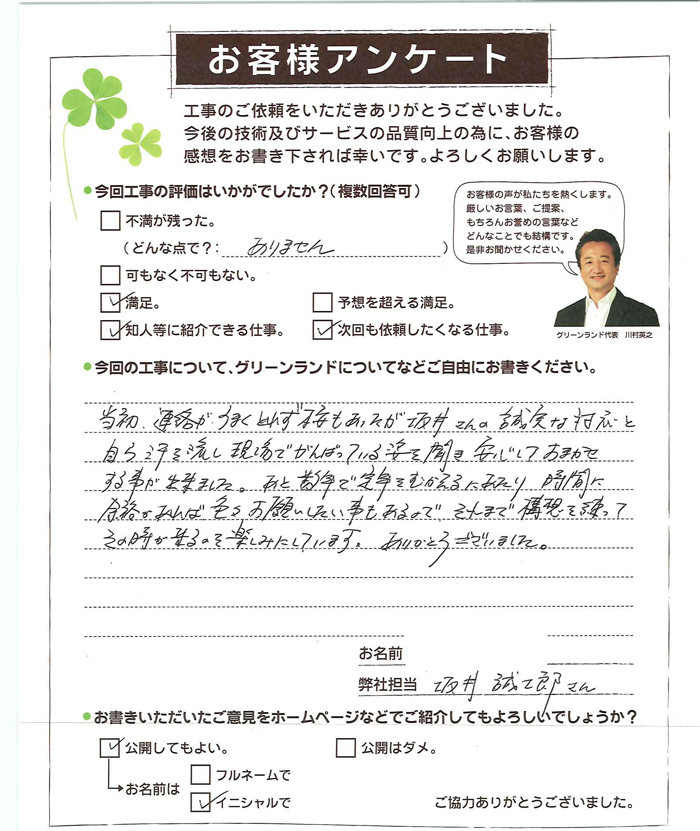 お客様アンケート
工事のご依頼をいただきありがとうございました。
今後の技術及びサービスの品質向上の為に、お客様の
感想をお書き下されば幸いです。よろしくお願いします。
●今回工事の評価はいかがでしたか?(複数回答可)
お客様の声が私たちを熱くします。
厳しいお言葉、ご提案、
もちろんお誉めの言葉など
どんなことでも結構です。
是非お聞かせください。
グリーンランド代表 川村英之
□不満が残った。
(どんな点で?: ありません )
□可もなく不可もない。
☑満足。 □予想を超える満足。
☑知人等に紹介できる仕事。 ☑次回も依頼したくなる仕事。
●今回の工事について、グリーンランドについてなどご自由にお書きください。
当初、連絡がうまくとれず もあったが坂井さんの誠実な対応と
自ら汗を流し現場でがんばっている姿を聞き安心しておまかせ
する事が出来ました。あと数年で定年をむかえるにあたり、時間に
余裕があれば色々お願いしたい事もあるので、それまで構想を練って
その時が来るのを楽しみにしています。ありがとうございました。
お名前
弊社担当 坂井 誠次郎さん
●お書きいただいたご意見をホームページなどでご紹介してもよろしいでしょうか?
☑公開してもよい。 □公開はダメ。
お名前は □フルネームで
☑イニシャルで
ご協力ありがとうございました。